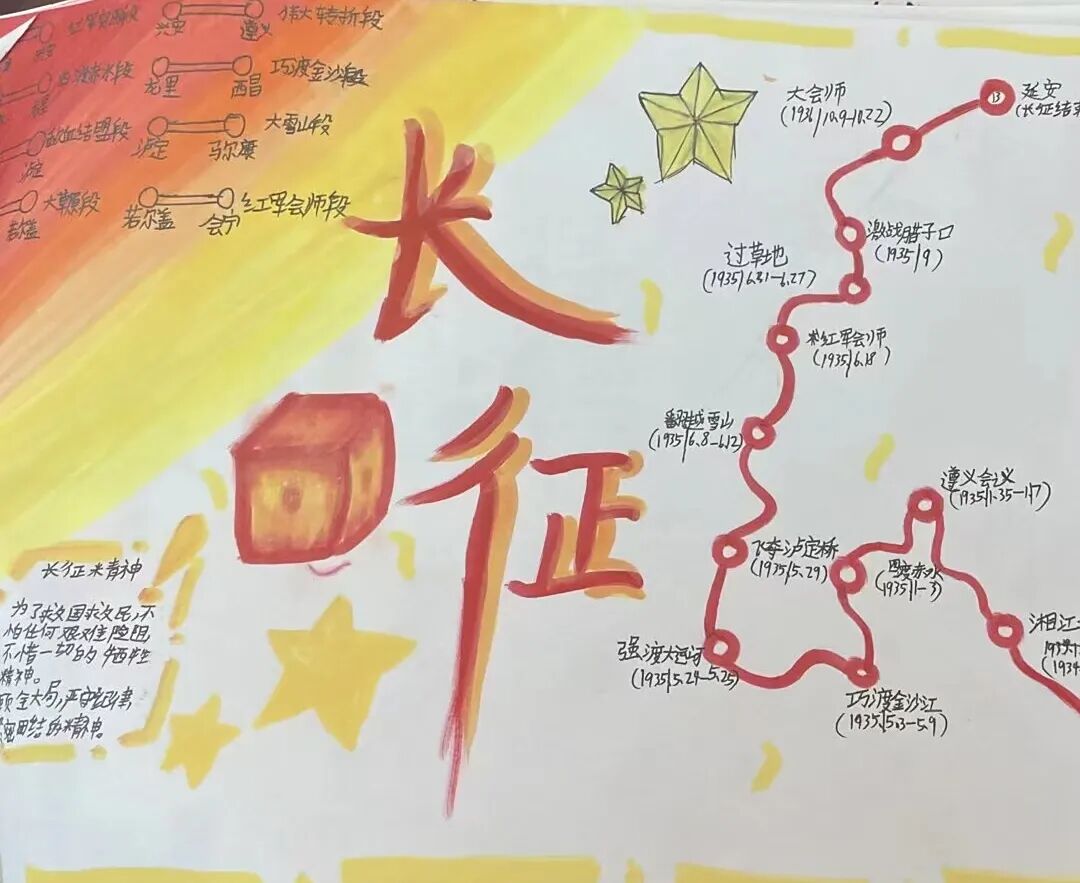 兴国
遵义
伟大转折段
赤水段
龙里
西昌
巧渡金沙段
歃血结盟段
泸定
马尔康
大雪山段
泸定
大草原段
若尔盖
会宁
红军会师段
长征
长征精神
为了救国救民,不
怕任何艰难险阻,
不惜一切的牺牲
精神。
顾全大局,严守纪律,
团结的精神
大会师
(1936/10.9-10.22)
延安
(长征结束
激战腊子口
(1935/9)
过草地
红军会师
(1935/6.18)
翻越雪山
(1935/6.8-6.12)
飞夺泸定桥
(1935/5.29)
强渡大渡河
(1935/5.24-5.25)
巧渡金沙江
(1935/5.3-5.9)
四渡赤水
(1935/1-3)
遵义会议
(1935/1.35-1.17)
湘江
(1934
13